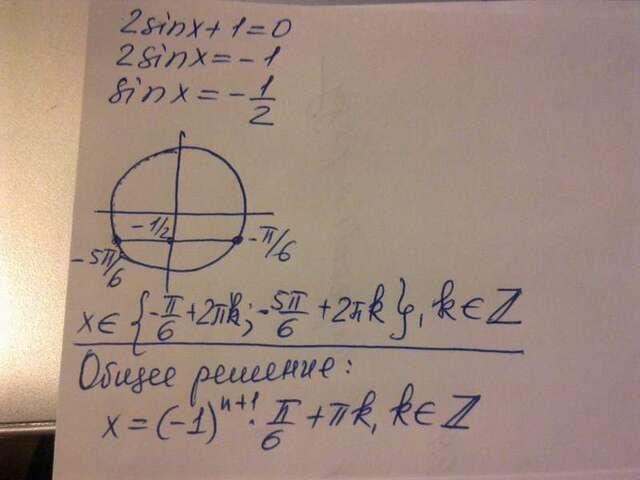 2sinx+1=0
2sinx=-1
sinx=-1/2
-1/2
-π/6
-5π/6
x∈{-π/6+2πk;-5π/6+2πk},k∈ℤ
Общее решение:
x=(-1)^{n+1}·π/6+πk,k∈ℤ